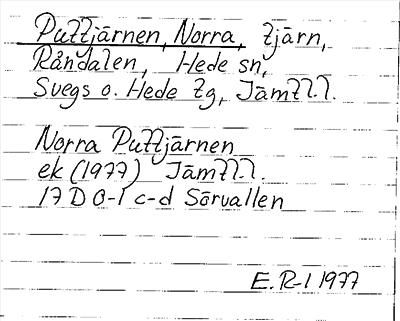 Puttjärnen, Norra, tjärn,
Råndalen, Hede sn,
Svegs o. Hede tg, Jämtl.l.
Norra Puttjärnen
ek (1977) Jämtl.l.
17 D 0-1 c-d Sörvallen
E. R-l 1977